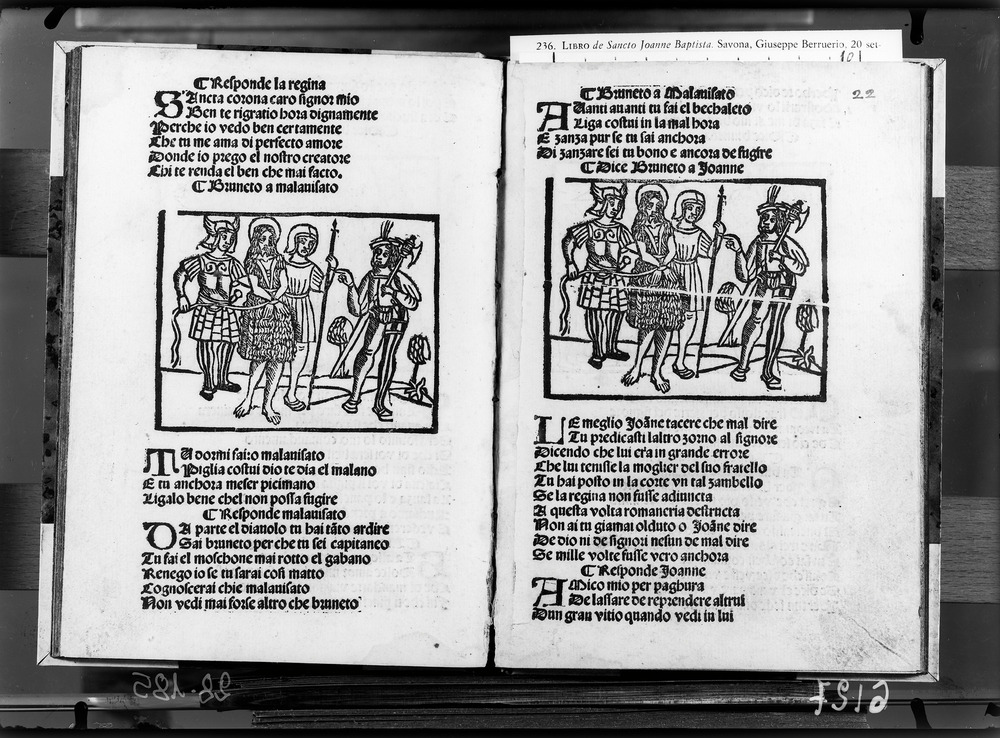 236. LIBRO de Sancto Joanne Baptista. Savona, Giuseppe Berruerio, 20 set-
101
22
¶ Responde la regina
SAncta corona caro signor mio
Ben te rigratio hora dignamente
Perche io vedo ben certamente
Che tu me ama di perfecto amore
Donde io prego el nostro creatore
Chi te renda el ben che mai facto.
¶ Bruneto a malauisato
TU dormi fairo malauisato
Piglia costui dio te dia el malano
E tu anchora meser picimano
Ligalo bene chel non possa fugire
¶ Responde malauisato
DA parte el diauolo tu hai tãto ardire
Sai bruneto per che tu sei capitaneo
Tu fai el moschone mai rotto el gabano
Renego io se tu sarai cosi matto
Cognoscerai chie malauisato
Non vedi mai forse altro che bruneto
¶ Bruneto a Malauisato
AUanti auanti tu fai el bechaleto
Liga costui in la mal hora
E zanza pur se tu sai anchora
Di zanzare sei tu bono e ancora de fugire
¶ Dice Bruneto a Joanne
LE meglio Joãne tacere che mal dire
Tu predicasti laltro zorno al signore
Dicendo che lui era in grande errore
Che lui tenisse la moglier del suo fratello
Tu hai posto in la corte vn tal zambello
Se la regina non fusse adiuncta
A questa volta romancria destructa
Non ai tu giamai olduto o Joãne dire
De dio ni de signori nesun de mal dire
Se mille volte fusse vero anchora
¶ Responde Joanne
AMico mio per paghura
De lassare de reprendere altrui
Dun gran vitio quando vedi in lui
28.185
6197